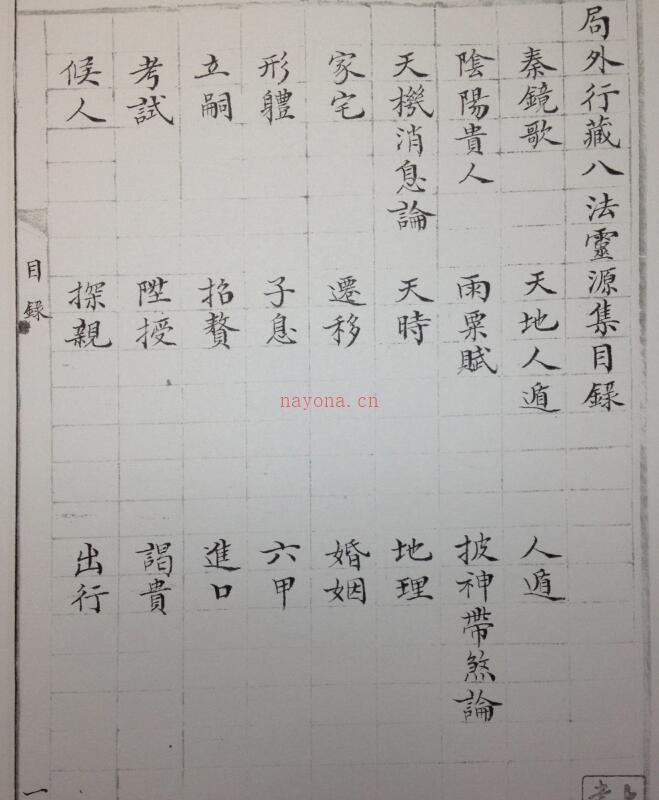 局外行藏八法靈源集目錄
秦鏡歌 天地人遁 人遁
陰陽貴人 雨粟賦 披神帶煞論
天機消息論 天時 地理
家宅 遷移 婚姻
形軆 子息 六甲
立嗣 招贅 進口
考試 陞授 謁貴
候人 探親 出行
目錄
一
nayona.cn